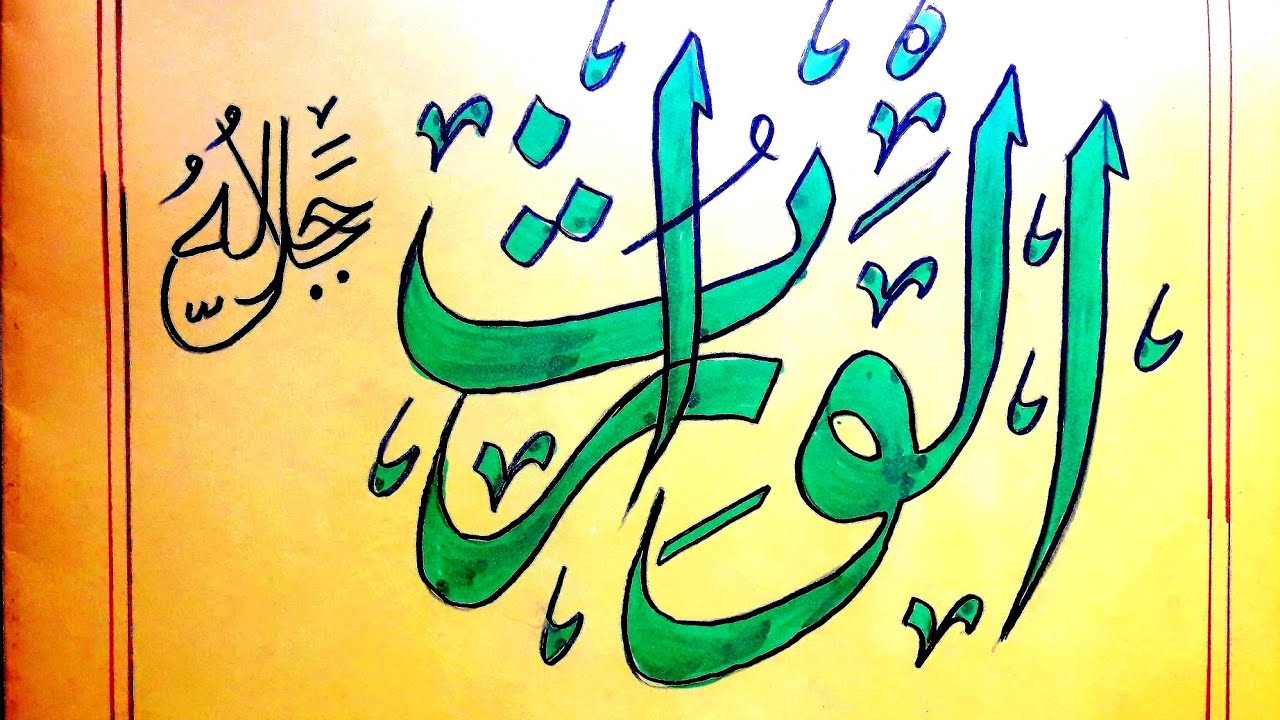 الْوَارِثُ جَلَّ جَلَالُهُ